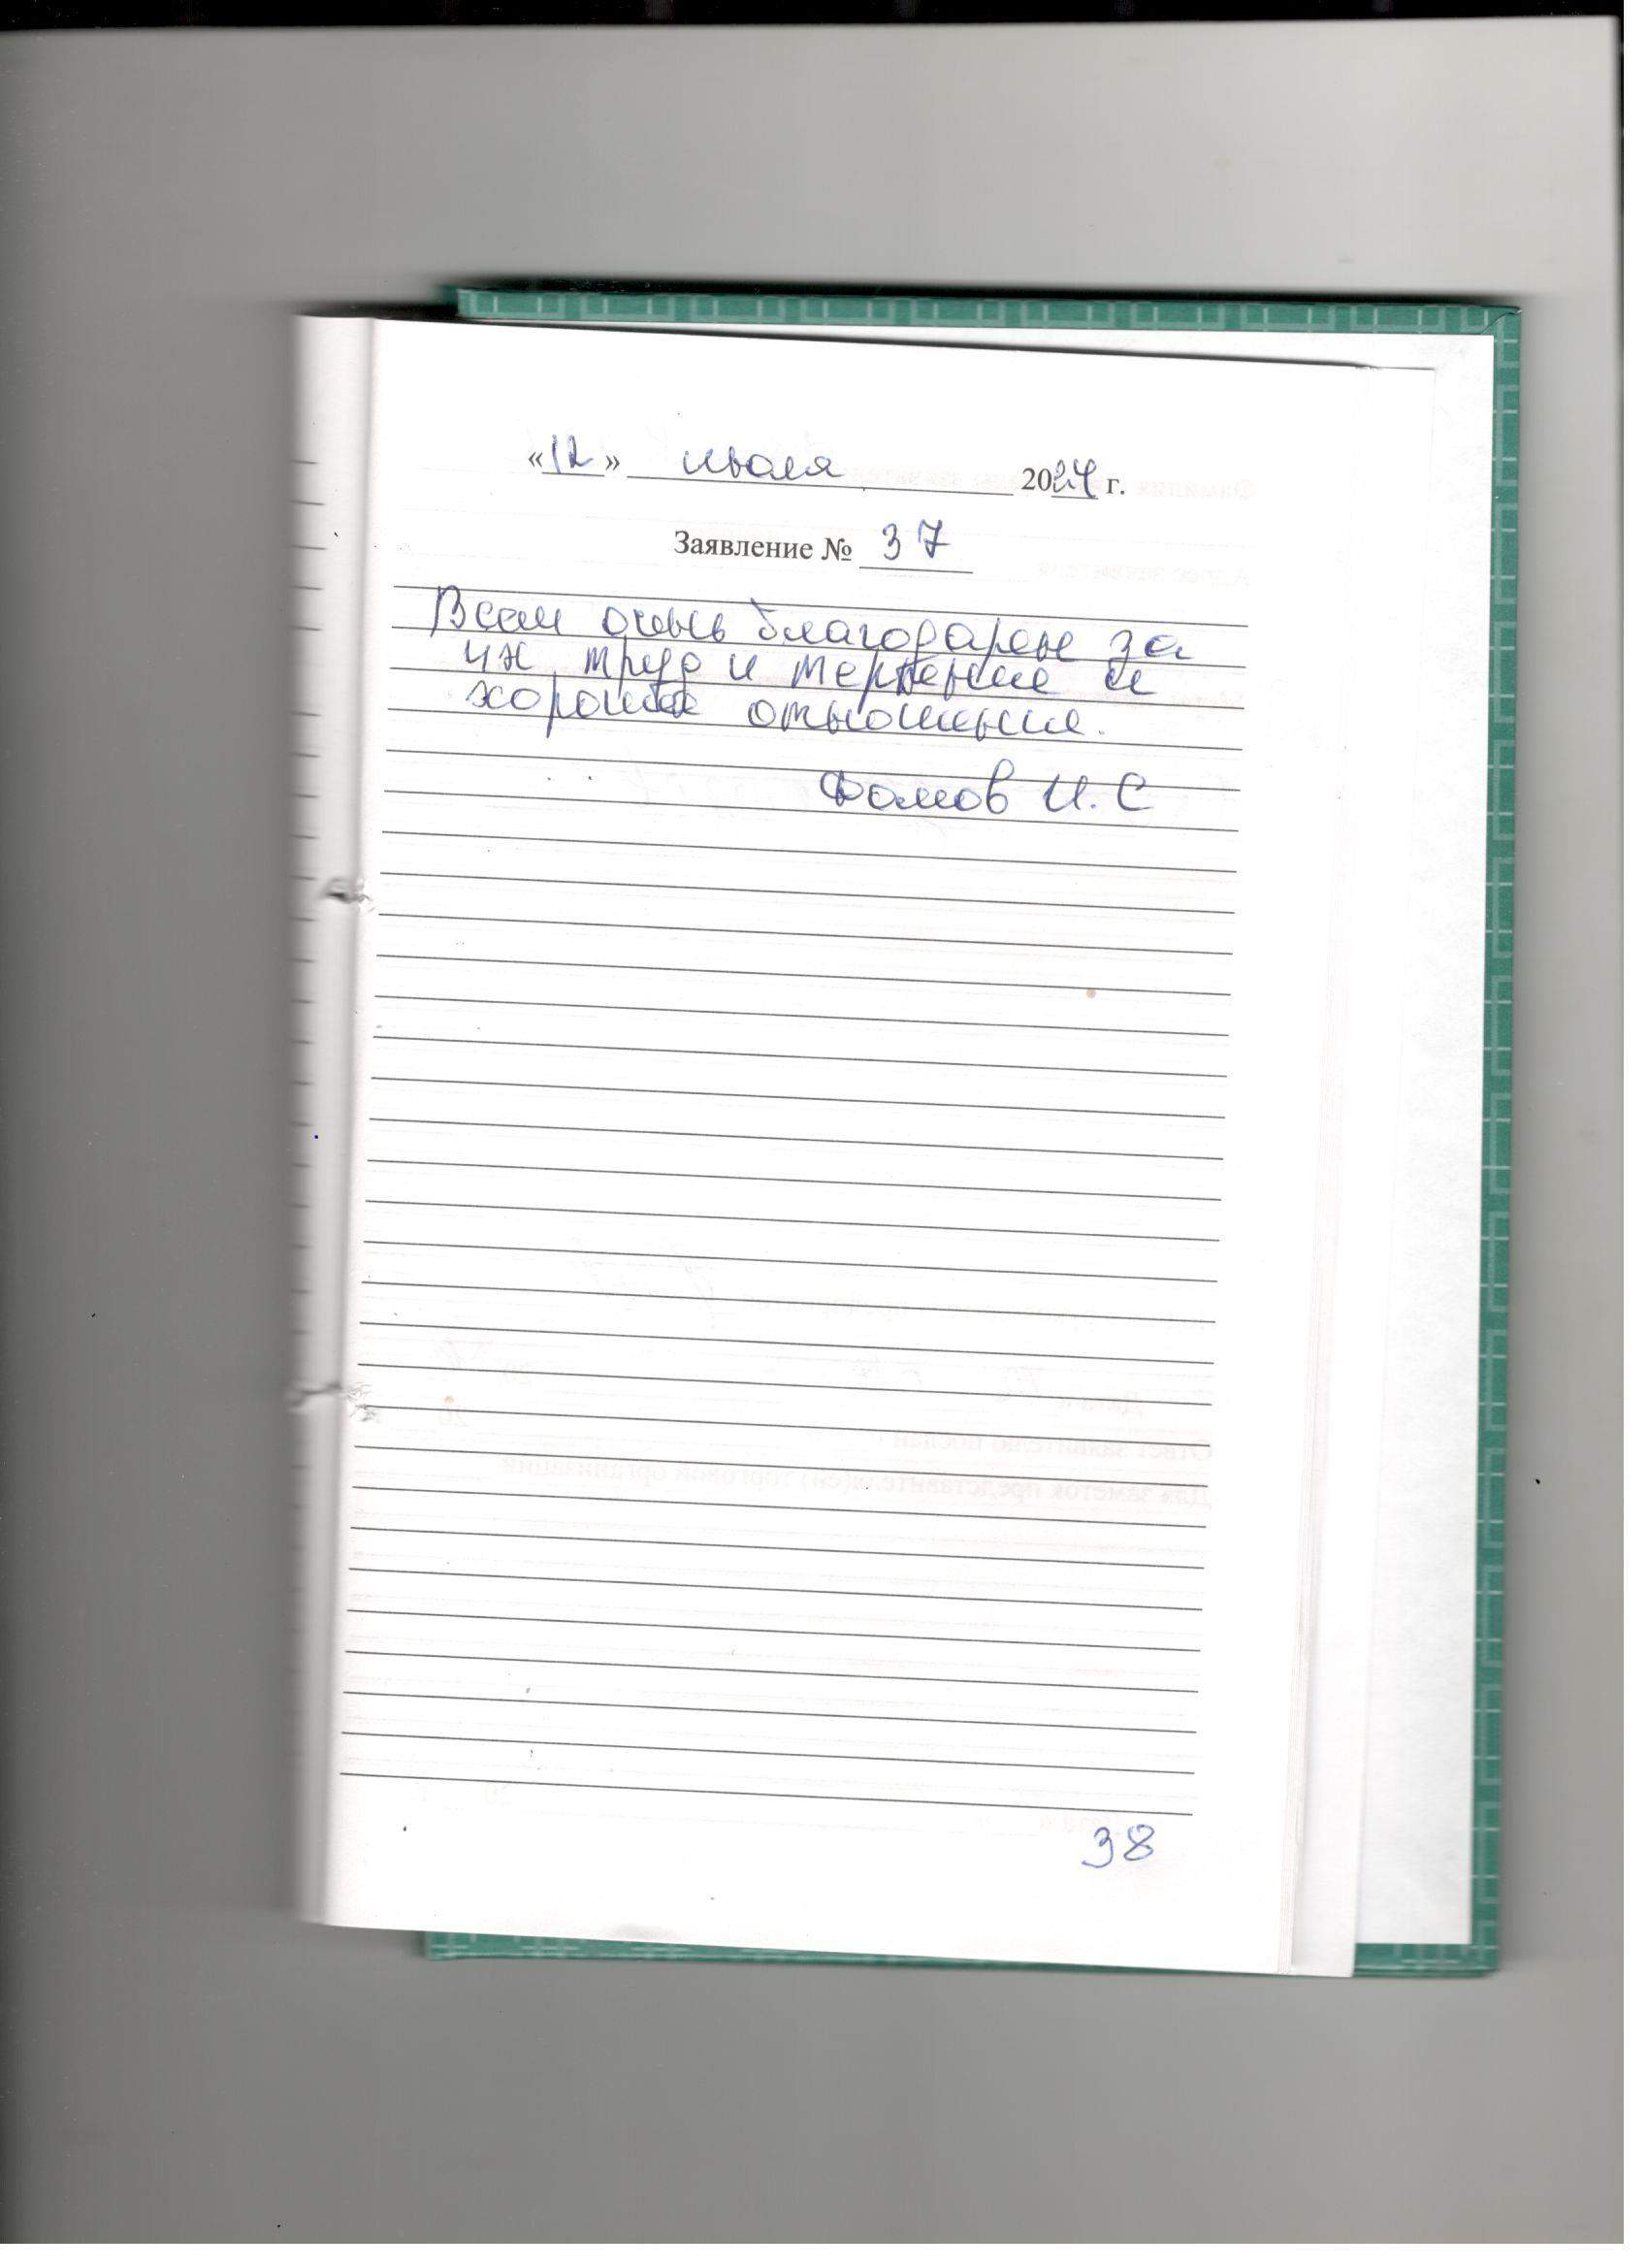 «12» июля 2024 г.
Заявление № 37
Всем очень благодарен за
их труд и терпение и
хорошее отношение.
Фомов И. С
38